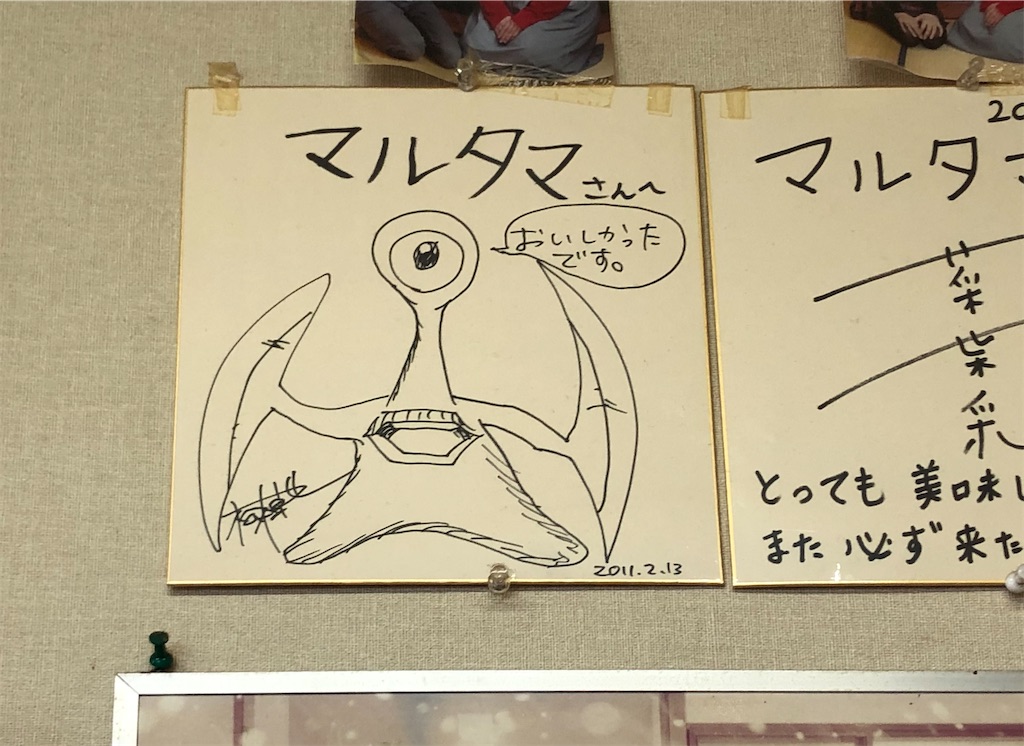 マルタマ
さんへ
おいしかった
です。
2011.2.13
20
マルタマ
とっても 美味し
また 必ず 来た